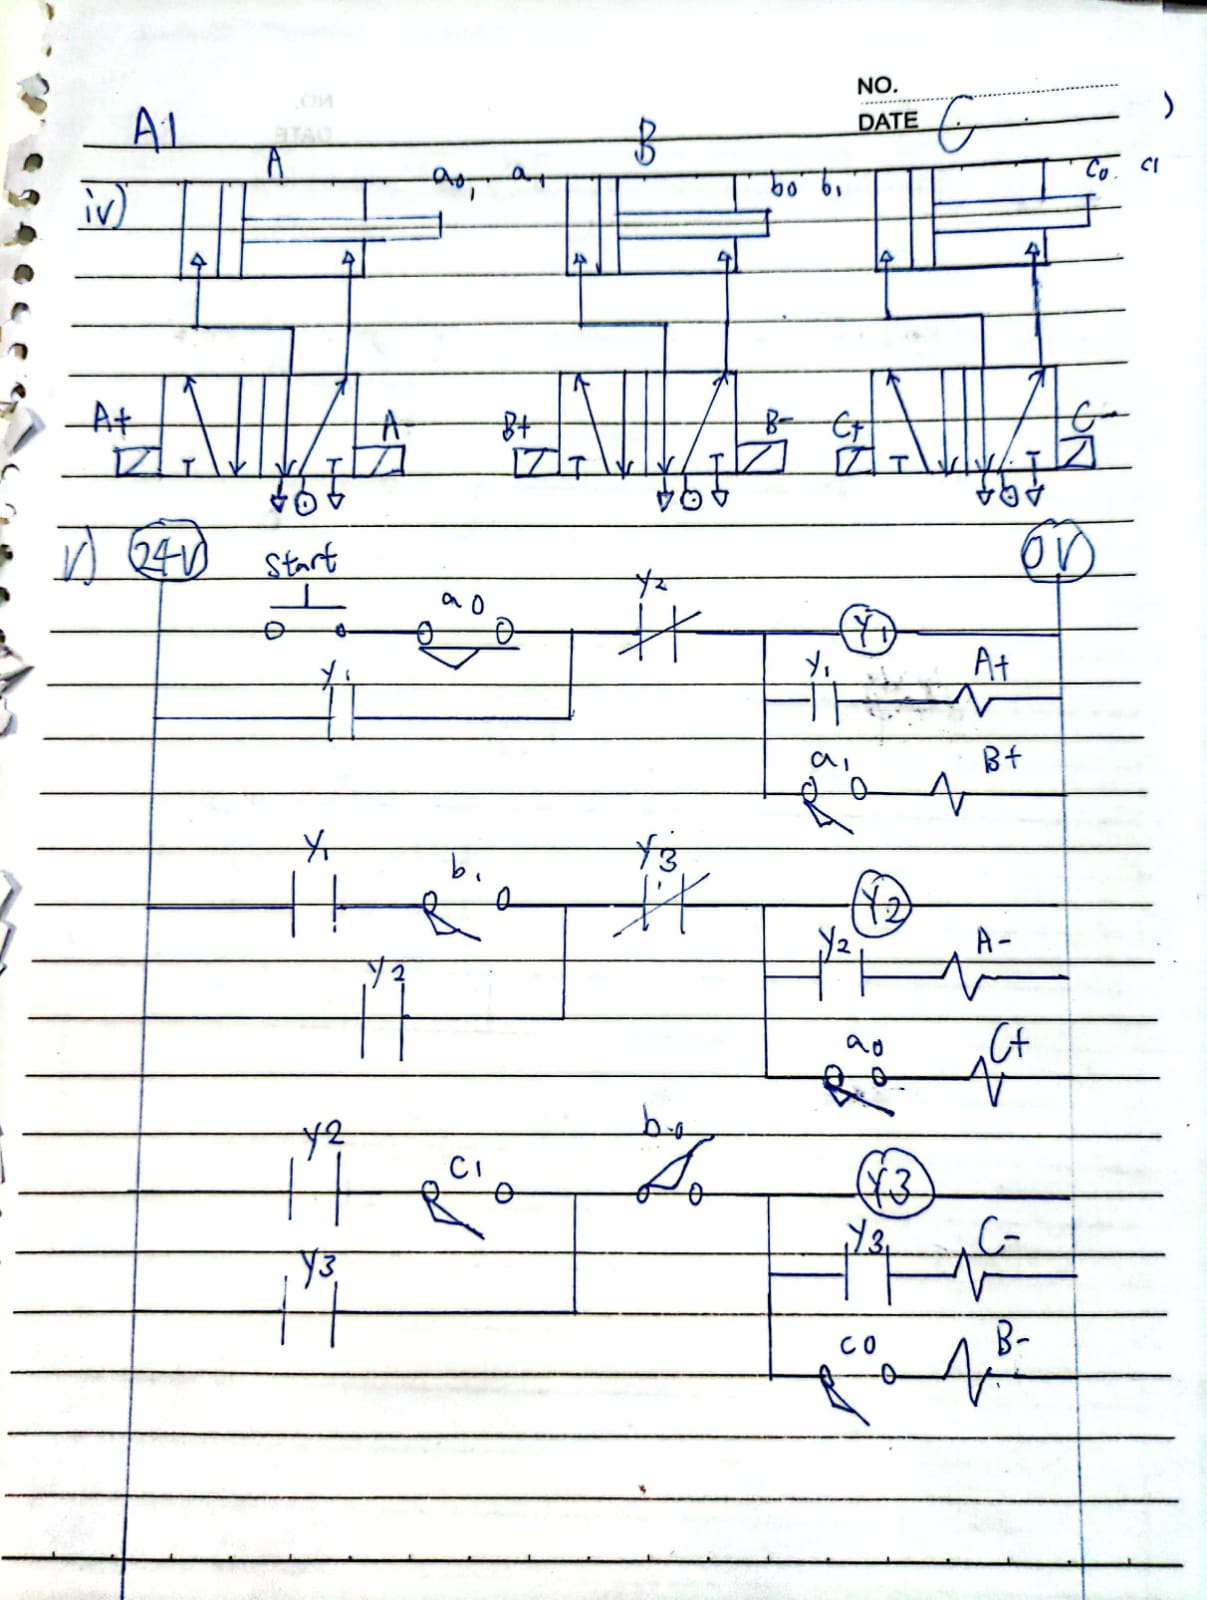 NO.
DATE
A1 A B C
iv) a0, a1 b0 b1 c0 c1
A+ A- B+ B- C+ C-
v) 24V 0V
Start a0 Y2 Y1
Y1 Y1 A+
a1 B+
Y1 b1 Y3 Y2
Y2 Y2 A-
a0 C+
Y2 C1 b0 Y3
Y3 Y3 C-
C0 B-